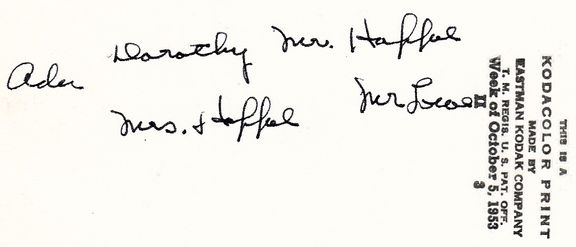 Dorothy Mr. Happel
Ada
Mrs. Happel Mr
THIS IS A
KODACOLOR PRINT
MADE BY
EASTMAN KODAK COMPANY
T. M. REGIS. U. S. PAT. OFF.
Week of October 5, 1953